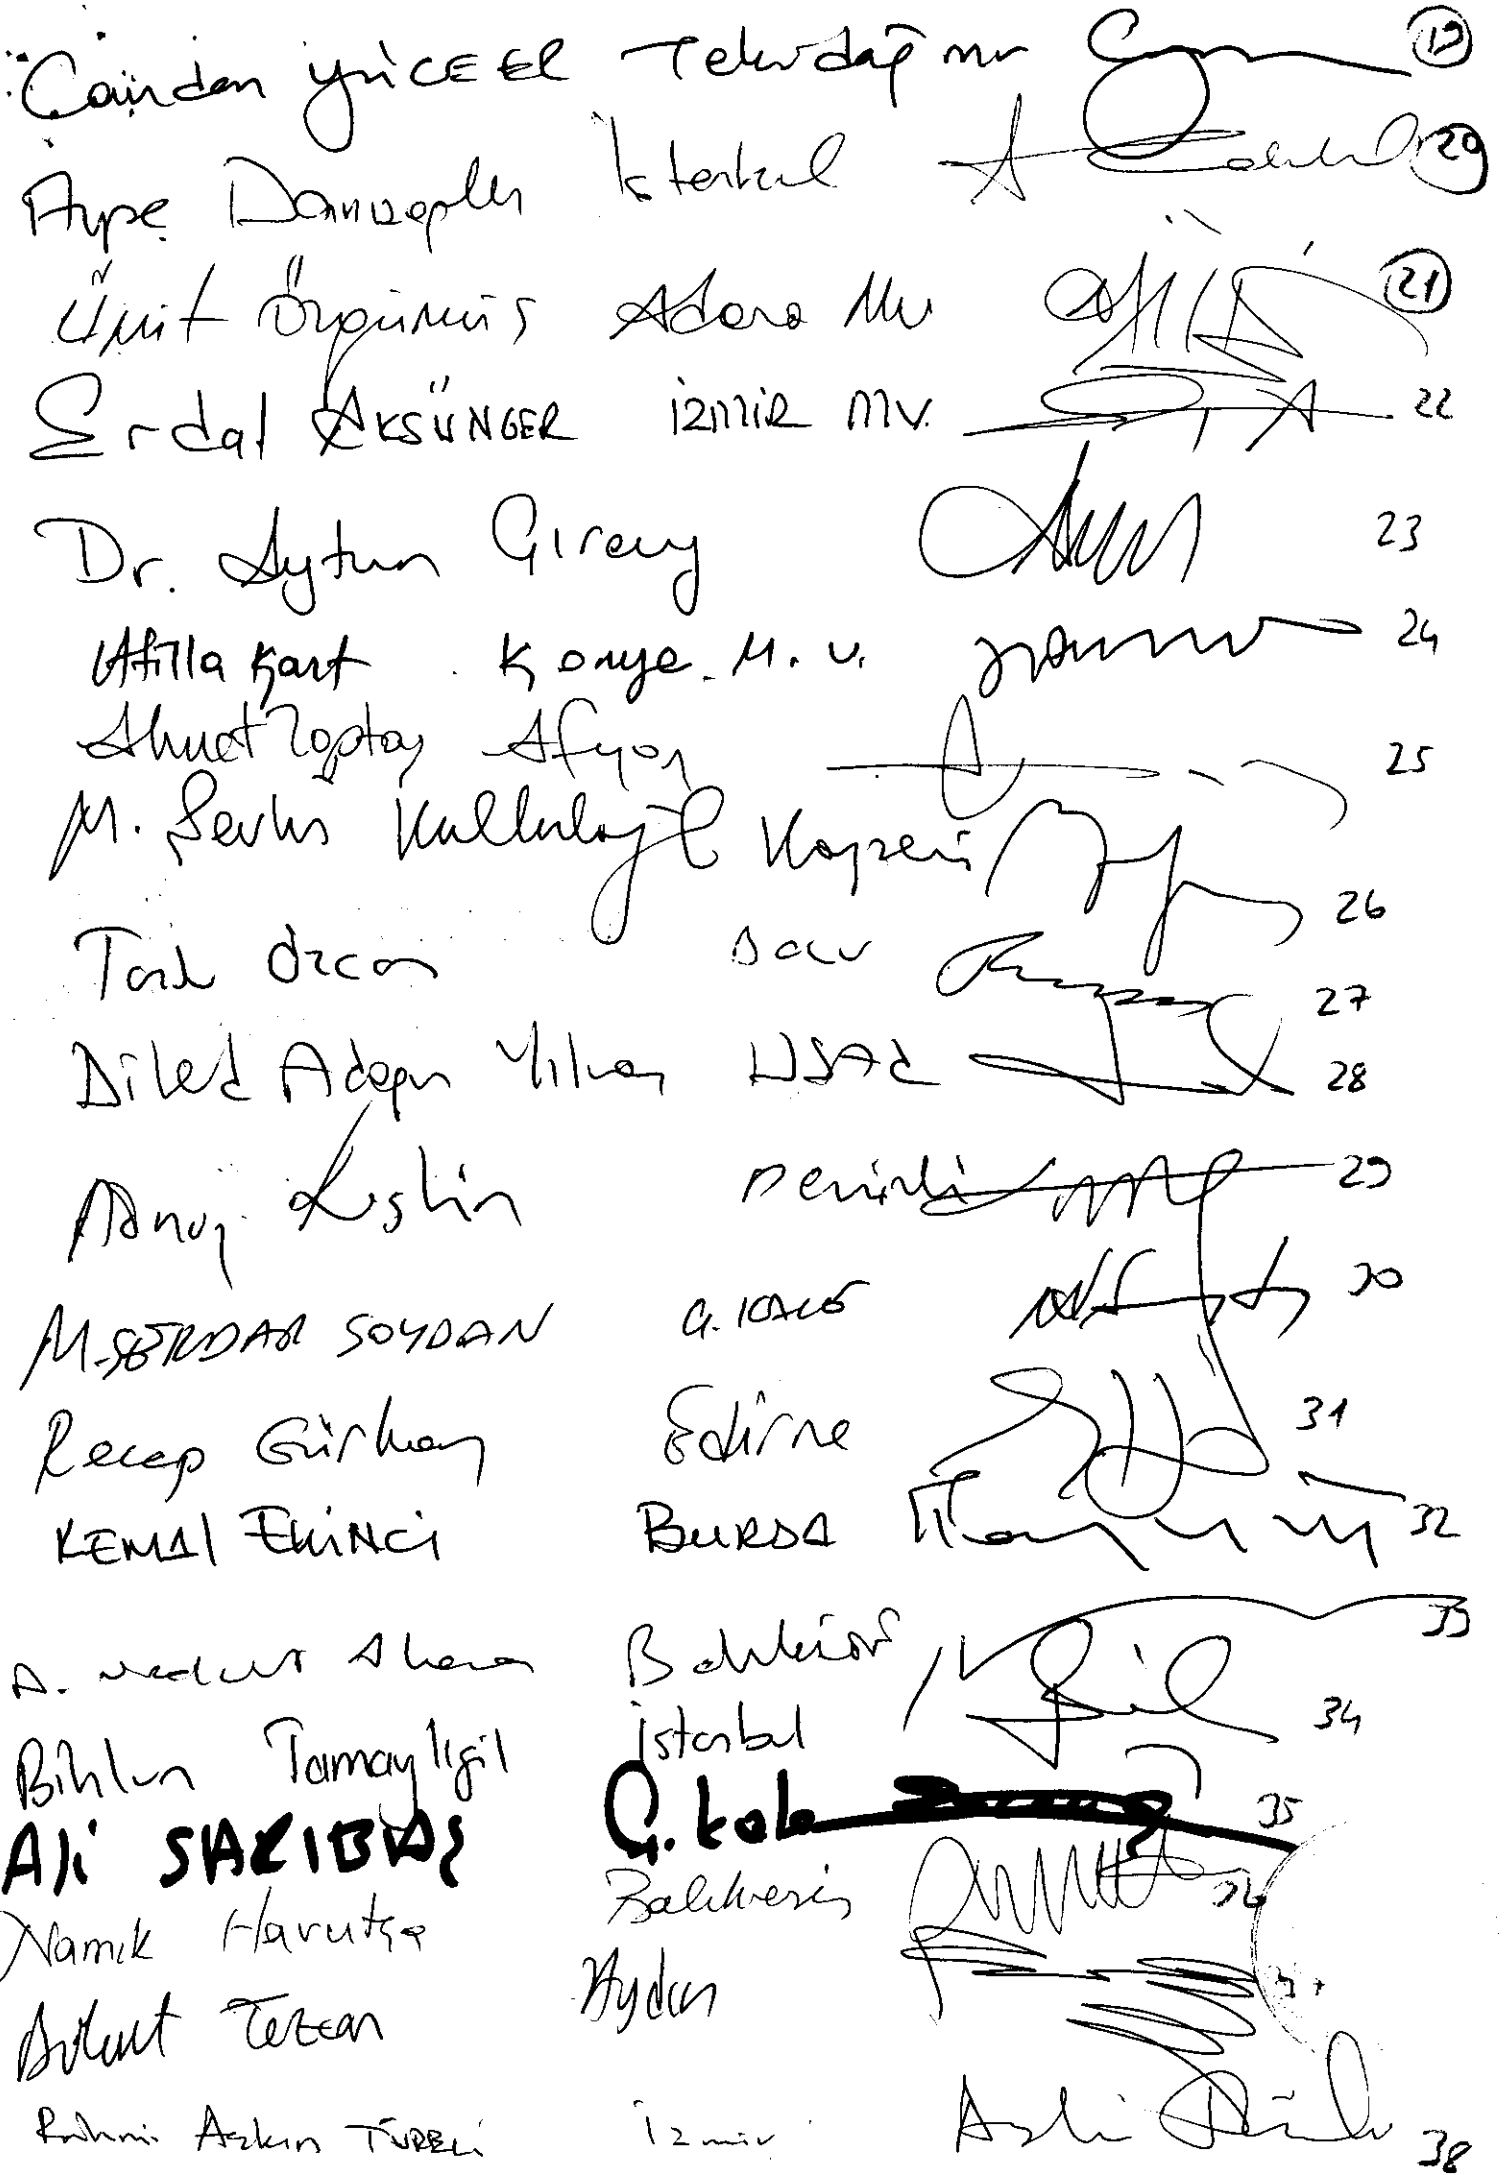 Candan YÜCEEL Tekirdağ mv 19
Ayşe Danışoğlu İstanbul 20
Ümit Özgümüş Adana Mv 21
Erdal AKSÜNGER İZMİR MV. 22
Dr. Aytun Çıray 23
Atilla Kart Konya M.V. 24
Ahmet Toptaş Afyon 25
M. Şevki Kulkuloğlu Kayseri 26
Tanju Özcan Bolu 27
Dilek Akagün Yılmaz UŞAK 28
Adnan Keskin Denizli 29
M. SERDAR SOYDAN Ç. KALE 30
Recep Gürkan Edirne 31
KEMAL EKİNCİ BURSA 32
A. Nedret Akova Balıkesir 33
Bihlun Tamaylıgil İstanbul 34
Ali SARIBAŞ Ç. Kale 35
Namık Havutça Balıkesir 36
Bülent Tezcan Aydın 37
Rahmi Aşkın TÜRELİ İzmir 38